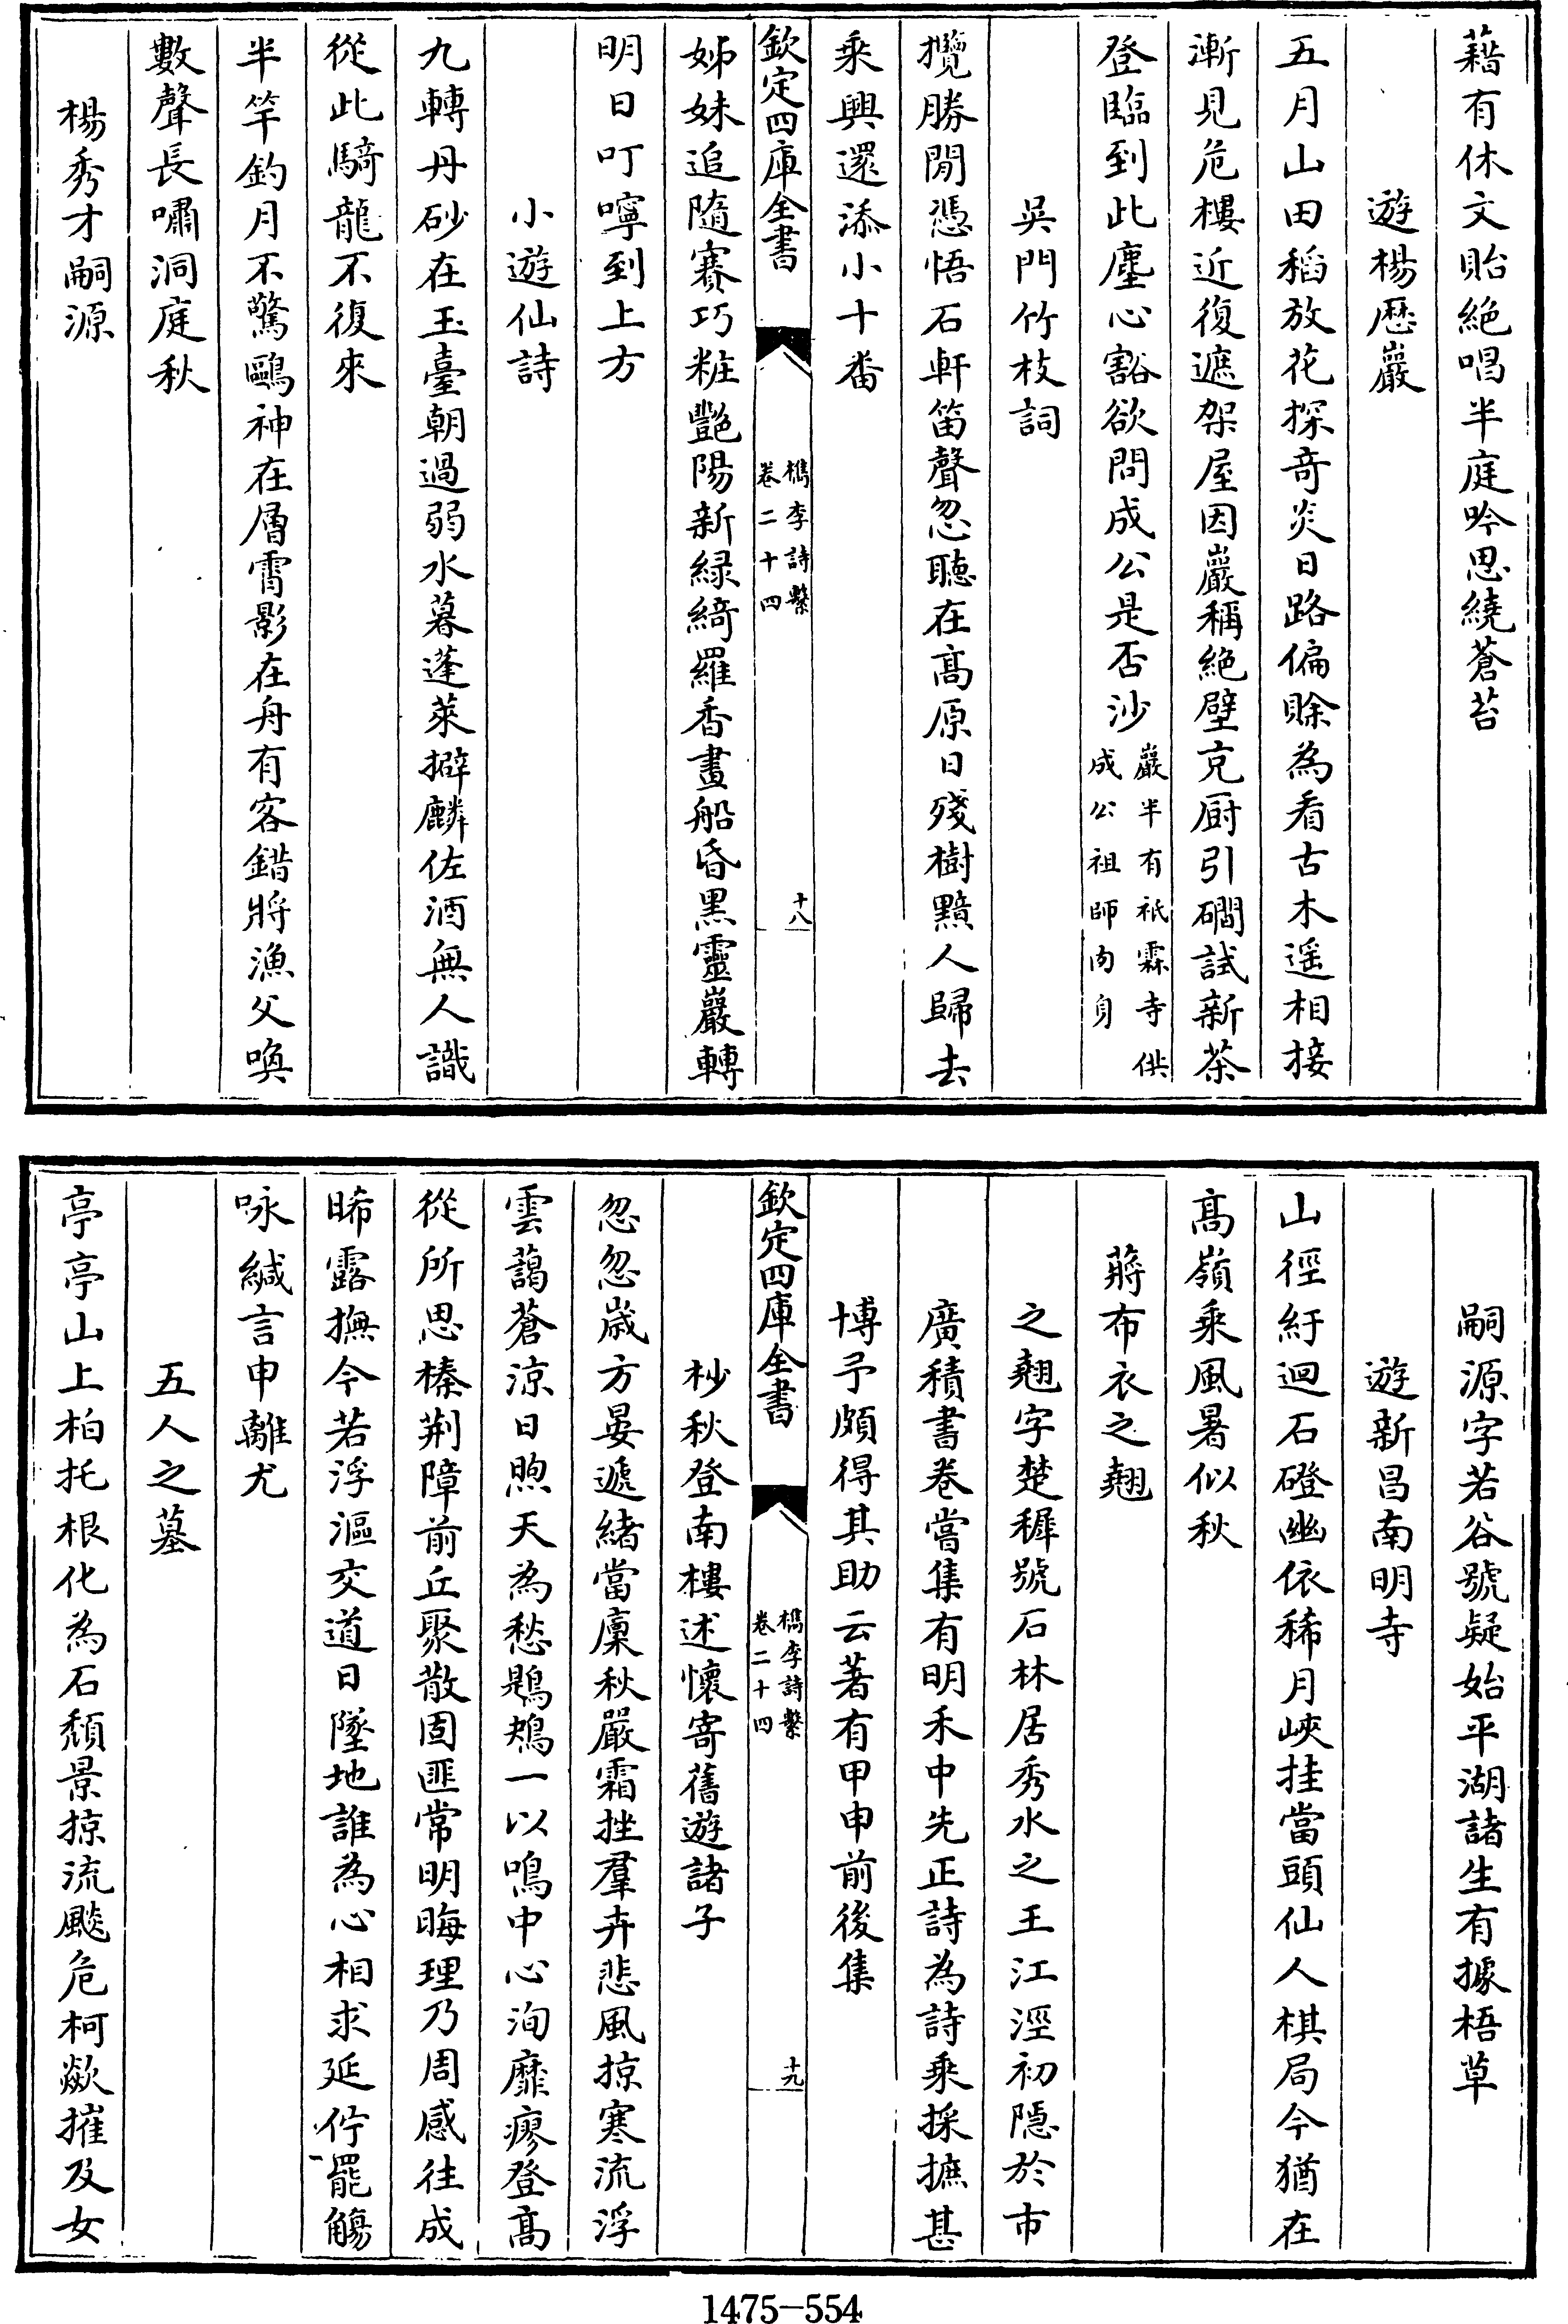 藉有休文貽絶唱半庭吟思繞蒼苔
遊楊歴巖
五月山田稻放花探奇炎日路偏賒為看古木遥相接
漸見危樓近復遮架屋因巖稱絶壁克厨引磵試新茶
登臨到此塵心豁欲問成公是否沙巖半有祇霖寺供
成公祖師肉身
吳門竹枝詞
攬勝閒憑悟石軒笛聲忽聽在髙原日殘樹黯人歸去
乘興還添小十番
欽定四庫全書
檇李詩繫
卷二十四
十八
姊妹追隨賽巧粧艷陽新緑綺羅香畫船昏黒靈巖轉
明日叮嚀到上方
小遊仙詩
九轉丹砂在玉臺朝過弱水暮蓬萊擗麟佐酒無人識
從此騎龍不復來
半竿釣月不驚鷗神在層霄影在舟有客錯將漁父喚
數聲長嘯洞庭秋
楊秀才嗣源
嗣源字若谷號疑始平湖諸生有據梧草
遊新昌南明寺
山徑紆迴石磴幽依稀月峽挂當頭仙人棋局今猶在
髙嶺乘風暑似秋
蔣布衣之翹
之翹字楚穉號石林居秀水之王江涇初隠於市
廣積書卷嘗集有明禾中先正詩為詩乘採摭甚
博予頗得其助云著有甲申前後集
欽定四庫全書
檇李詩繫
卷二十四
十九
杪秋登南樓述懷寄舊遊諸子
忽忽嵗方晏遞緒當廩秋嚴霜挫羣卉悲風掠寒流浮
雲藹蒼涼日煦天為愁鶗鴂一以鳴中心洵靡瘳登髙
從所思榛荆障前丘聚散固匪常明晦理乃周感往成
晞露撫今若浮漚交道日墜地誰為心相求延佇罷觴
咏緘言申離尤
五人之墓
亭亭山上柏托根化為石頽景掠流颷危柯歘摧及女
1475-554